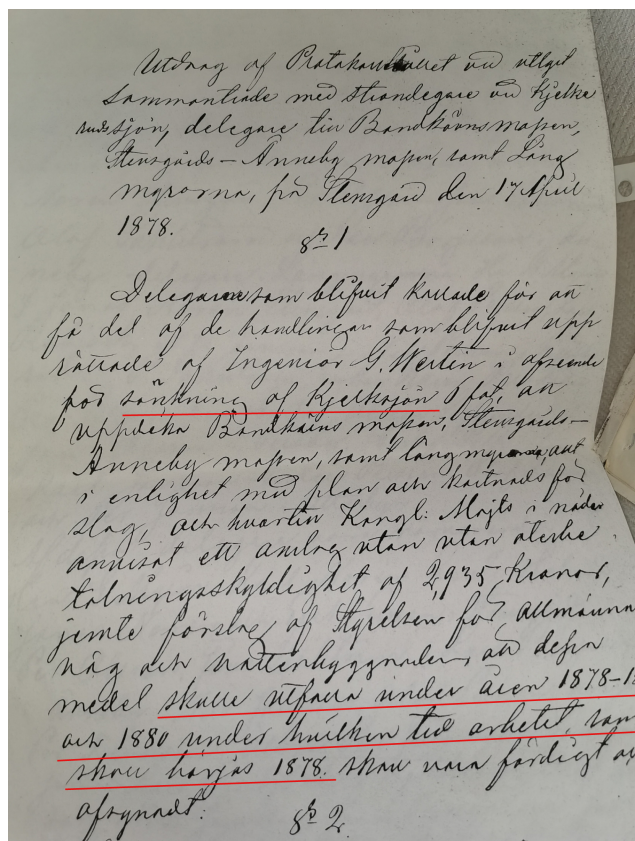 Utdrag af Protokollet vid utlyst
sammanträde med strandegare vid Kjelke
rudssjön, delegare till Bandkärnsmossen,
Stensgårds – Anneby mossen, samt Lång
myrorna, på Stensgård den 17 April
1878.
§ 1
Delegarne som blifvit kallade för att
få del af de handlingar som blifvit upp
rättade af Ingeniör G. Wertin i afseende
för sänkning af Kjelksjön 6 fot, att
uppdika Bandkärns mossen, Stensgårds –
Anneby mossen, samt långmyrorna, allt
i enlighet med plan och kostnadsför
slag, och hvartill Kongl: Majts i nåder
anvisat ett anslag utan utan återbe
talningsskyldighet af 2,935 Kronor,
jemte förslag af Styrelsen för allmänna
väg och vattenbyggnader, att dessa
medel skulle utfalla under åren 1878–1
och 1880 under hvilken tid arbetet, som
skall börjas 1878. skall vara färdigt
afsynadt.
§ 2